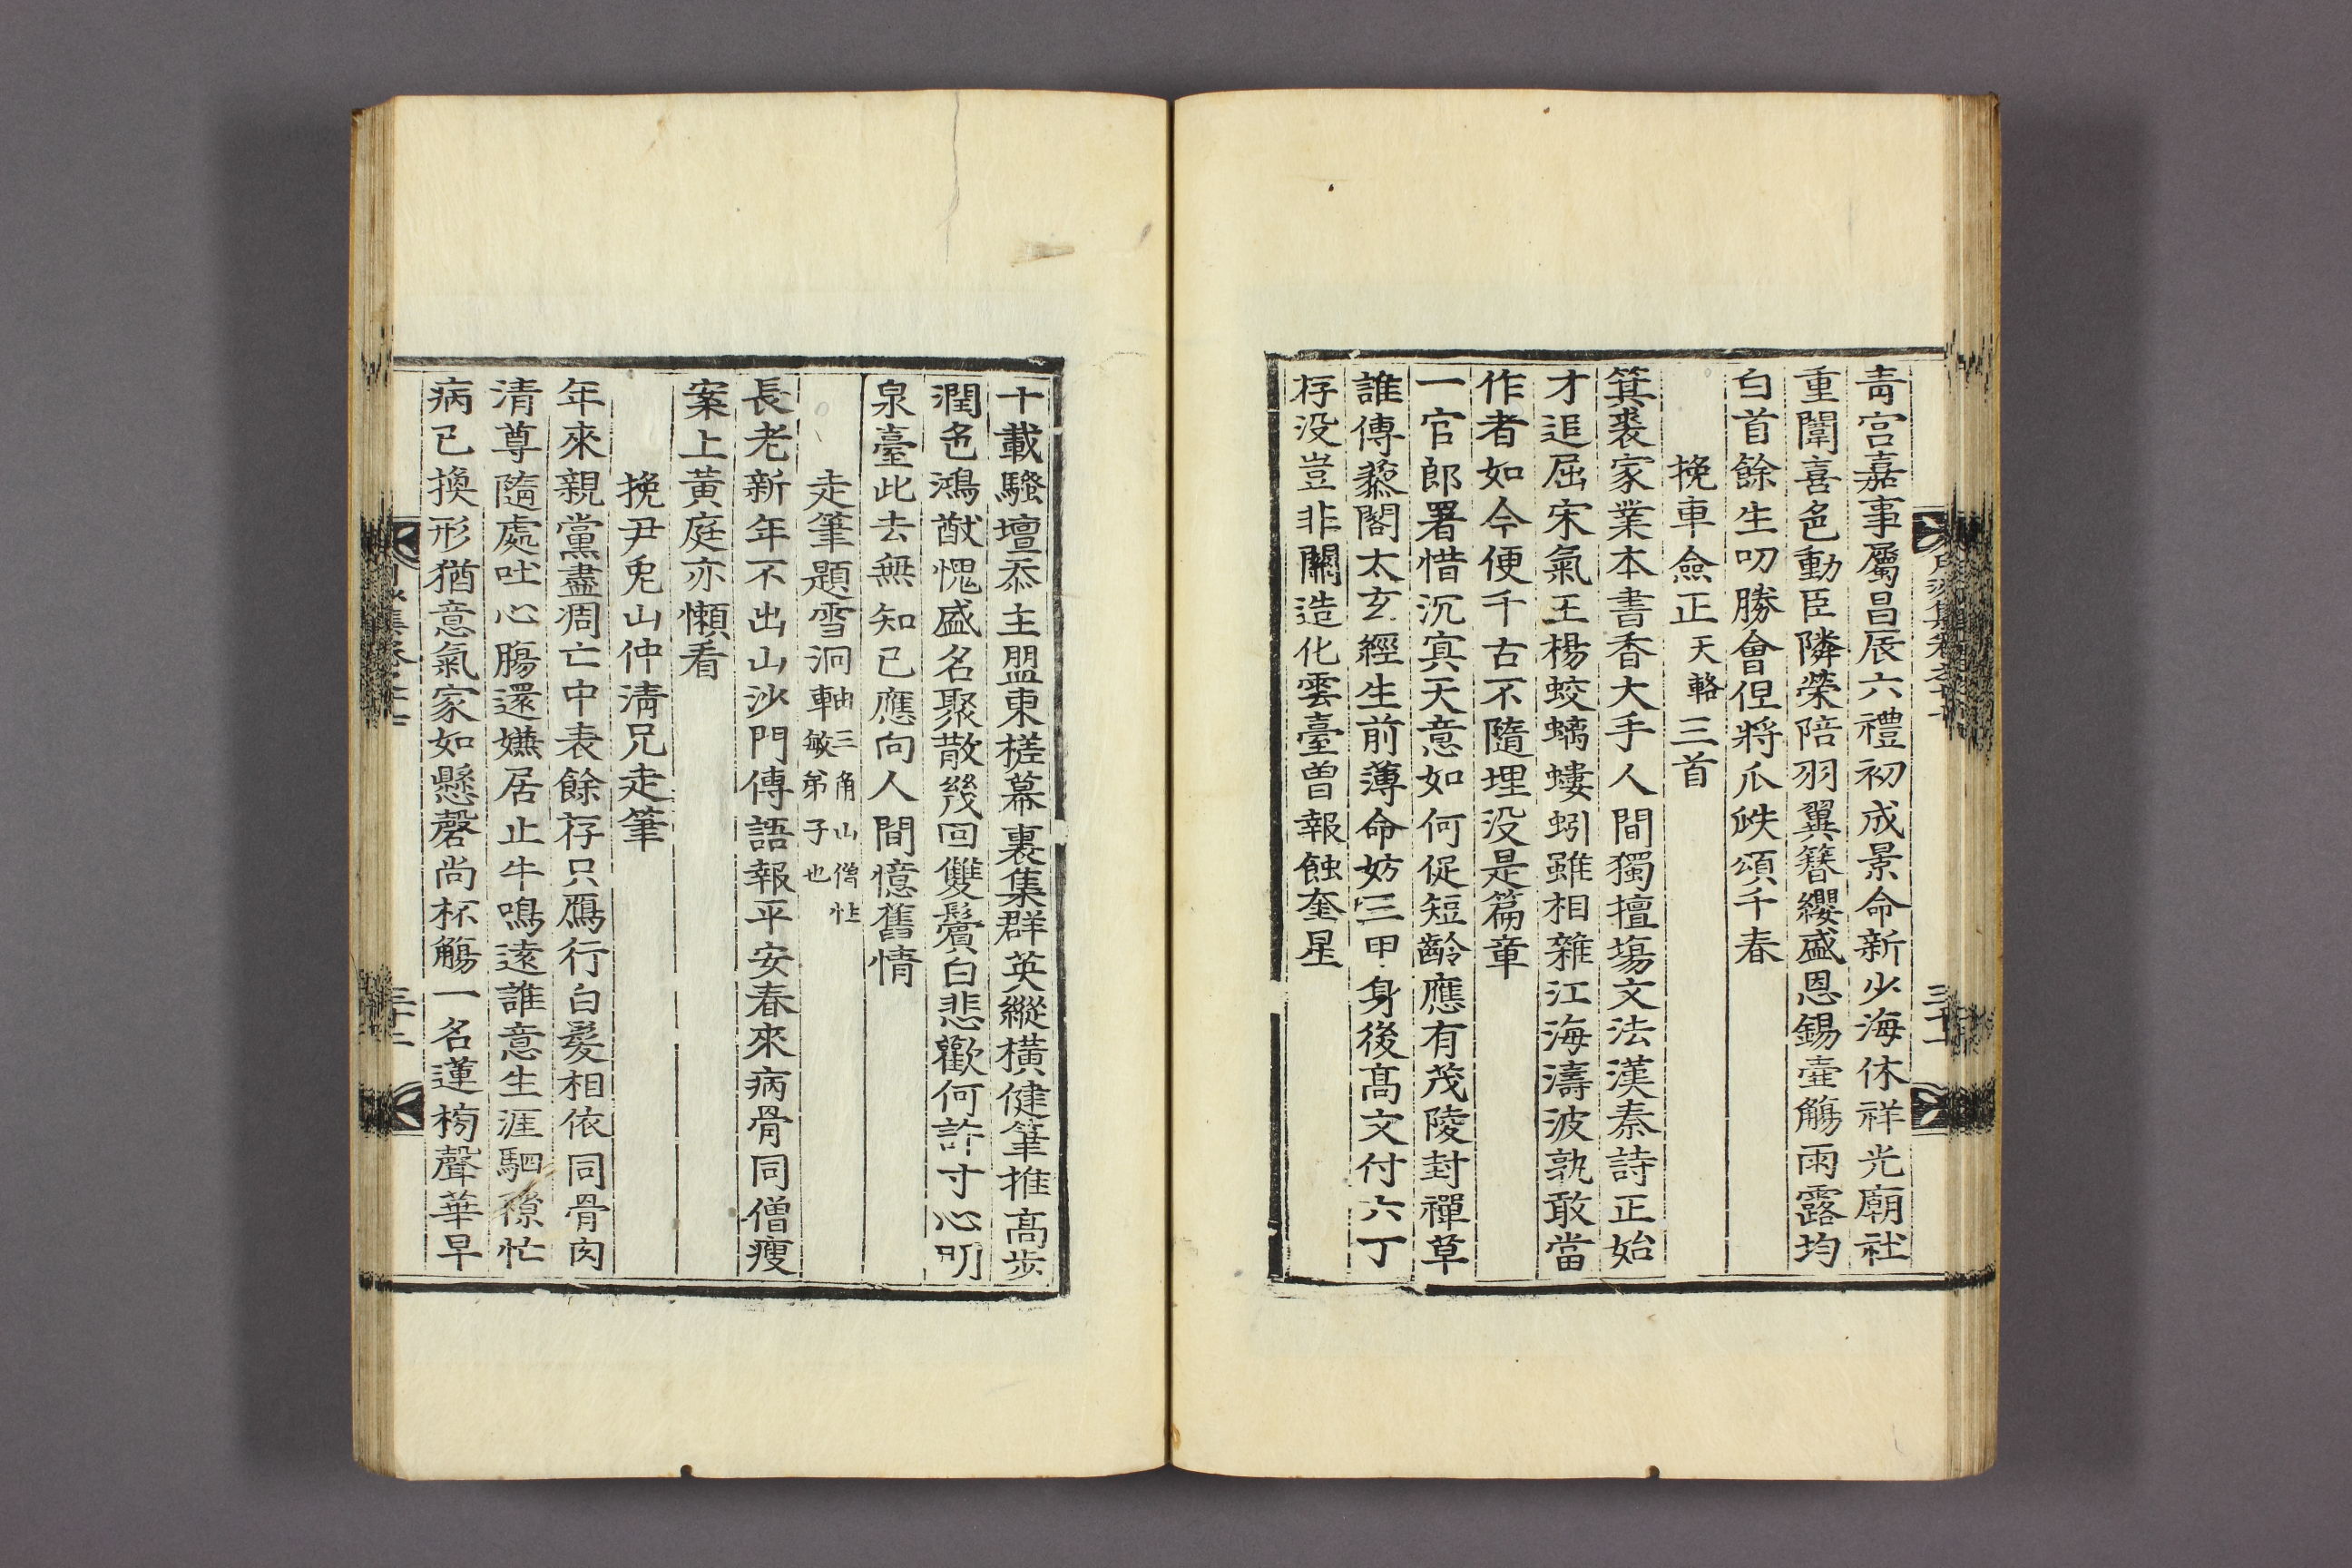 靑宮嘉事屬昌辰六禮初成景命新少海休祥光廟社
重闈喜色動臣隣榮陪羽翼簪纓盛恩錫壺觴雨露均
白首餘生叨勝會但將瓜瓞頌千春
挽車僉正天輅三首
箕裘家業本書香大手人間獨擅塲文法漢秦詩正始
才追屈宋氣王楊蛟螭螻蚓雖相雜江海濤波孰敢當
作者如今便千古不隨埋没是篇章
一官郎署惜沉冥天意如何促短齡應有茂陵封禪草
誰傳藜閣太玄經生前薄命妨三甲身後高文付六丁
存没豈非關造化雲臺曾報蝕奎星
十載騷壇忝主盟東槎幕裏集群英縱橫健筆推高步
潤色鴻猷愧盛名聚散幾回雙鬢白悲歡何許寸心明
泉臺此去無知已應向人間憶舊情
走筆題雪洞軸三角山僧性敏弟子也
長老新年不出山沙門傳語報平安春來病骨同僧瘦
案上黃庭亦懶看
挽尹兎山仲淸兄走筆
年來親黨盡凋亡中表餘存只鴈行白髮相依同骨肉
清尊隨處吐心膓還嫌居止牛鳴遠誰意生涯駟隙忙
病已換形猶意氣家如懸磬尚杯觴一名蓮榜聲華早
集卷之
三十一
三十二